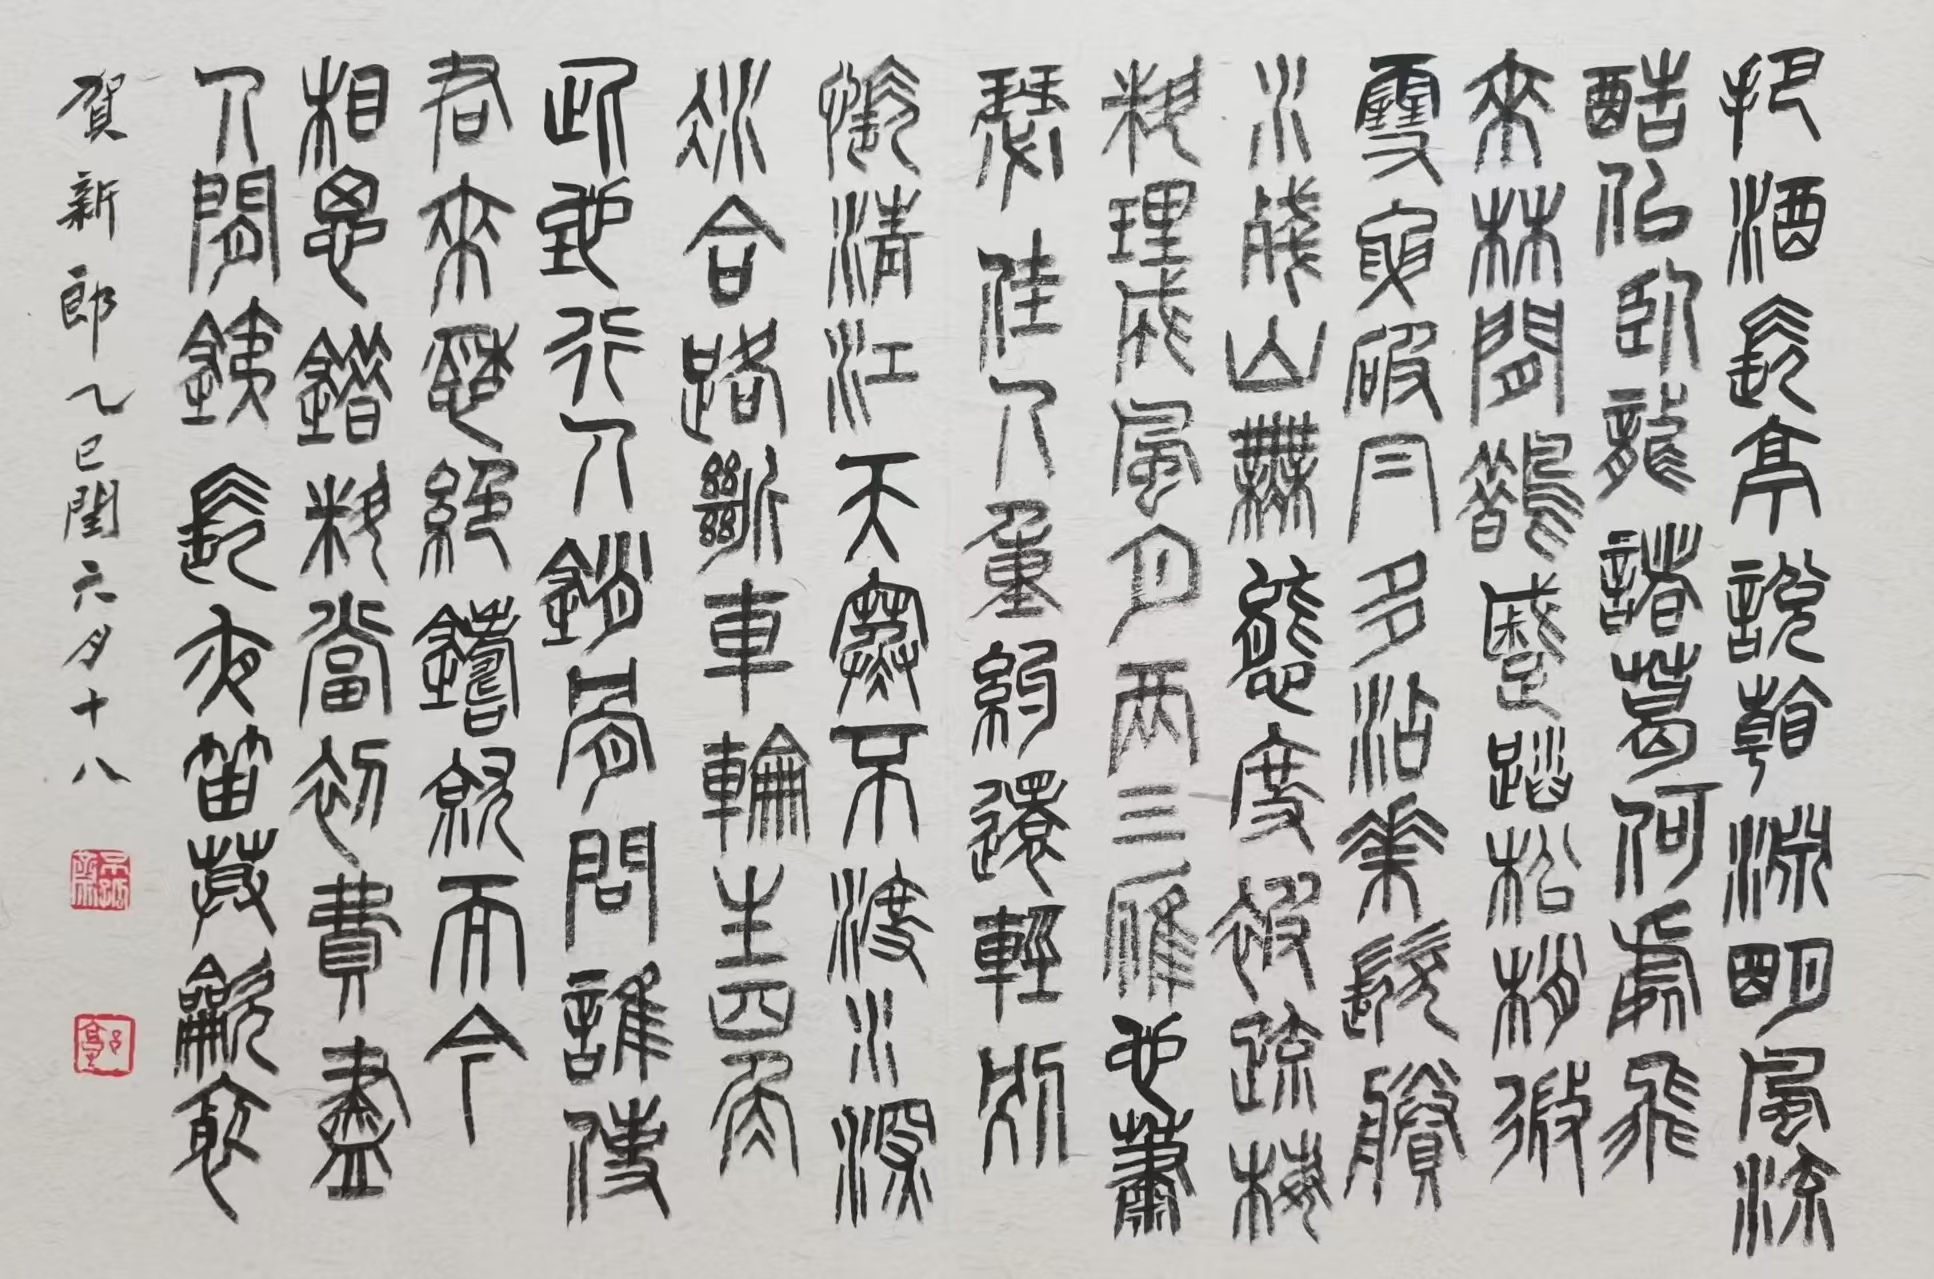 把酒長亭說看淵明風流
酷似臥龍諸葛何處飛
來林間鵲蹙踏松梢微
雪要破帽多沾華髮賸
水殘山無態度被疏梅
料理成風月兩三雁也蕭
瑟佳人重約還輕別
悵清江天寒不渡水深
冰合路斷車輪生四角
此地行人銷骨問誰使
君來愁絕鑄就而今
相思錯料當初費盡
人間鐵長夜笛莫龡裂
賀新郎乙巳閏六月十八